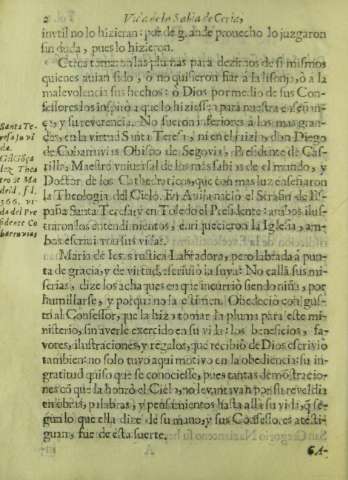 2 Vida de la Sabia de Ceria,
invtil no lo hizieran: por de grande prouecho lo juzgaron
sin duda, pues lo hizieron.
Otros tomaron las plumas para dezirnos de si mismos
quienes auian sido, ò no quisieron fiar à la lisonja, ò à la
malevolencia sus hechos: ò Dios por medio de sus Con-
fessores los inspirò a que lo hiziessen para nuestra enseñan-
ça, y su reverencia. No fueron inferiores à las mas gran-
des, en la virtud Santa Teresa, ni en el juizio don Diego
de Cobarruvias Obispo de Segovia, Presidente de Cas-
tilla, Maestro vniversal de los mas sabios de el mundo, y
Doctor de los Cathedraticos, que con mas luz enseñaron
la Theologia del Cielo. En Auila naciò el Serafin de Es-
paña Santa Teresa, y en Toledo el Presidente: ambos ilus-
traron los entendimientos, enriquecieron la Iglesia, am-
bos escriuieron sus vidas.
Maria de Iesus rustica Labradora, pero labrada à pun-
ta de gracia, y de virtud, escriuiò la suya: No calla sus mi-
serias, dize los achaques en que incurriò siendo niña, por
humillarse, y porque no la estimen. Obedeciò con gus-
to al Confessor, que la hizo tomar la pluma para este mi-
nisterio, sin averle exercido en su vida: los beneficios, fa-
vores, ilustraciones, y regalos, que recibiò de Dios escriviò
tambien: no solo tuvo aqui motivo en la obediencia: su in-
gratitud quiso que se conociesse, pues tantas demostracio-
nes cõ que la honrò el Cielo, no levantavan por su reveldia
en obras, palabras, y pensamientos hasta allà su vida, q̃ se-
gun lo que ella dize de su mano, y sus Confessores atesti-
guan, fue de esta suerte.
GA-
Santa Te-
resa su vi
da.
Gil Gõça
lez Thea
tro de Ma
drid, f.l.
366. vi-
da del Pre
sidente Co
barruvias